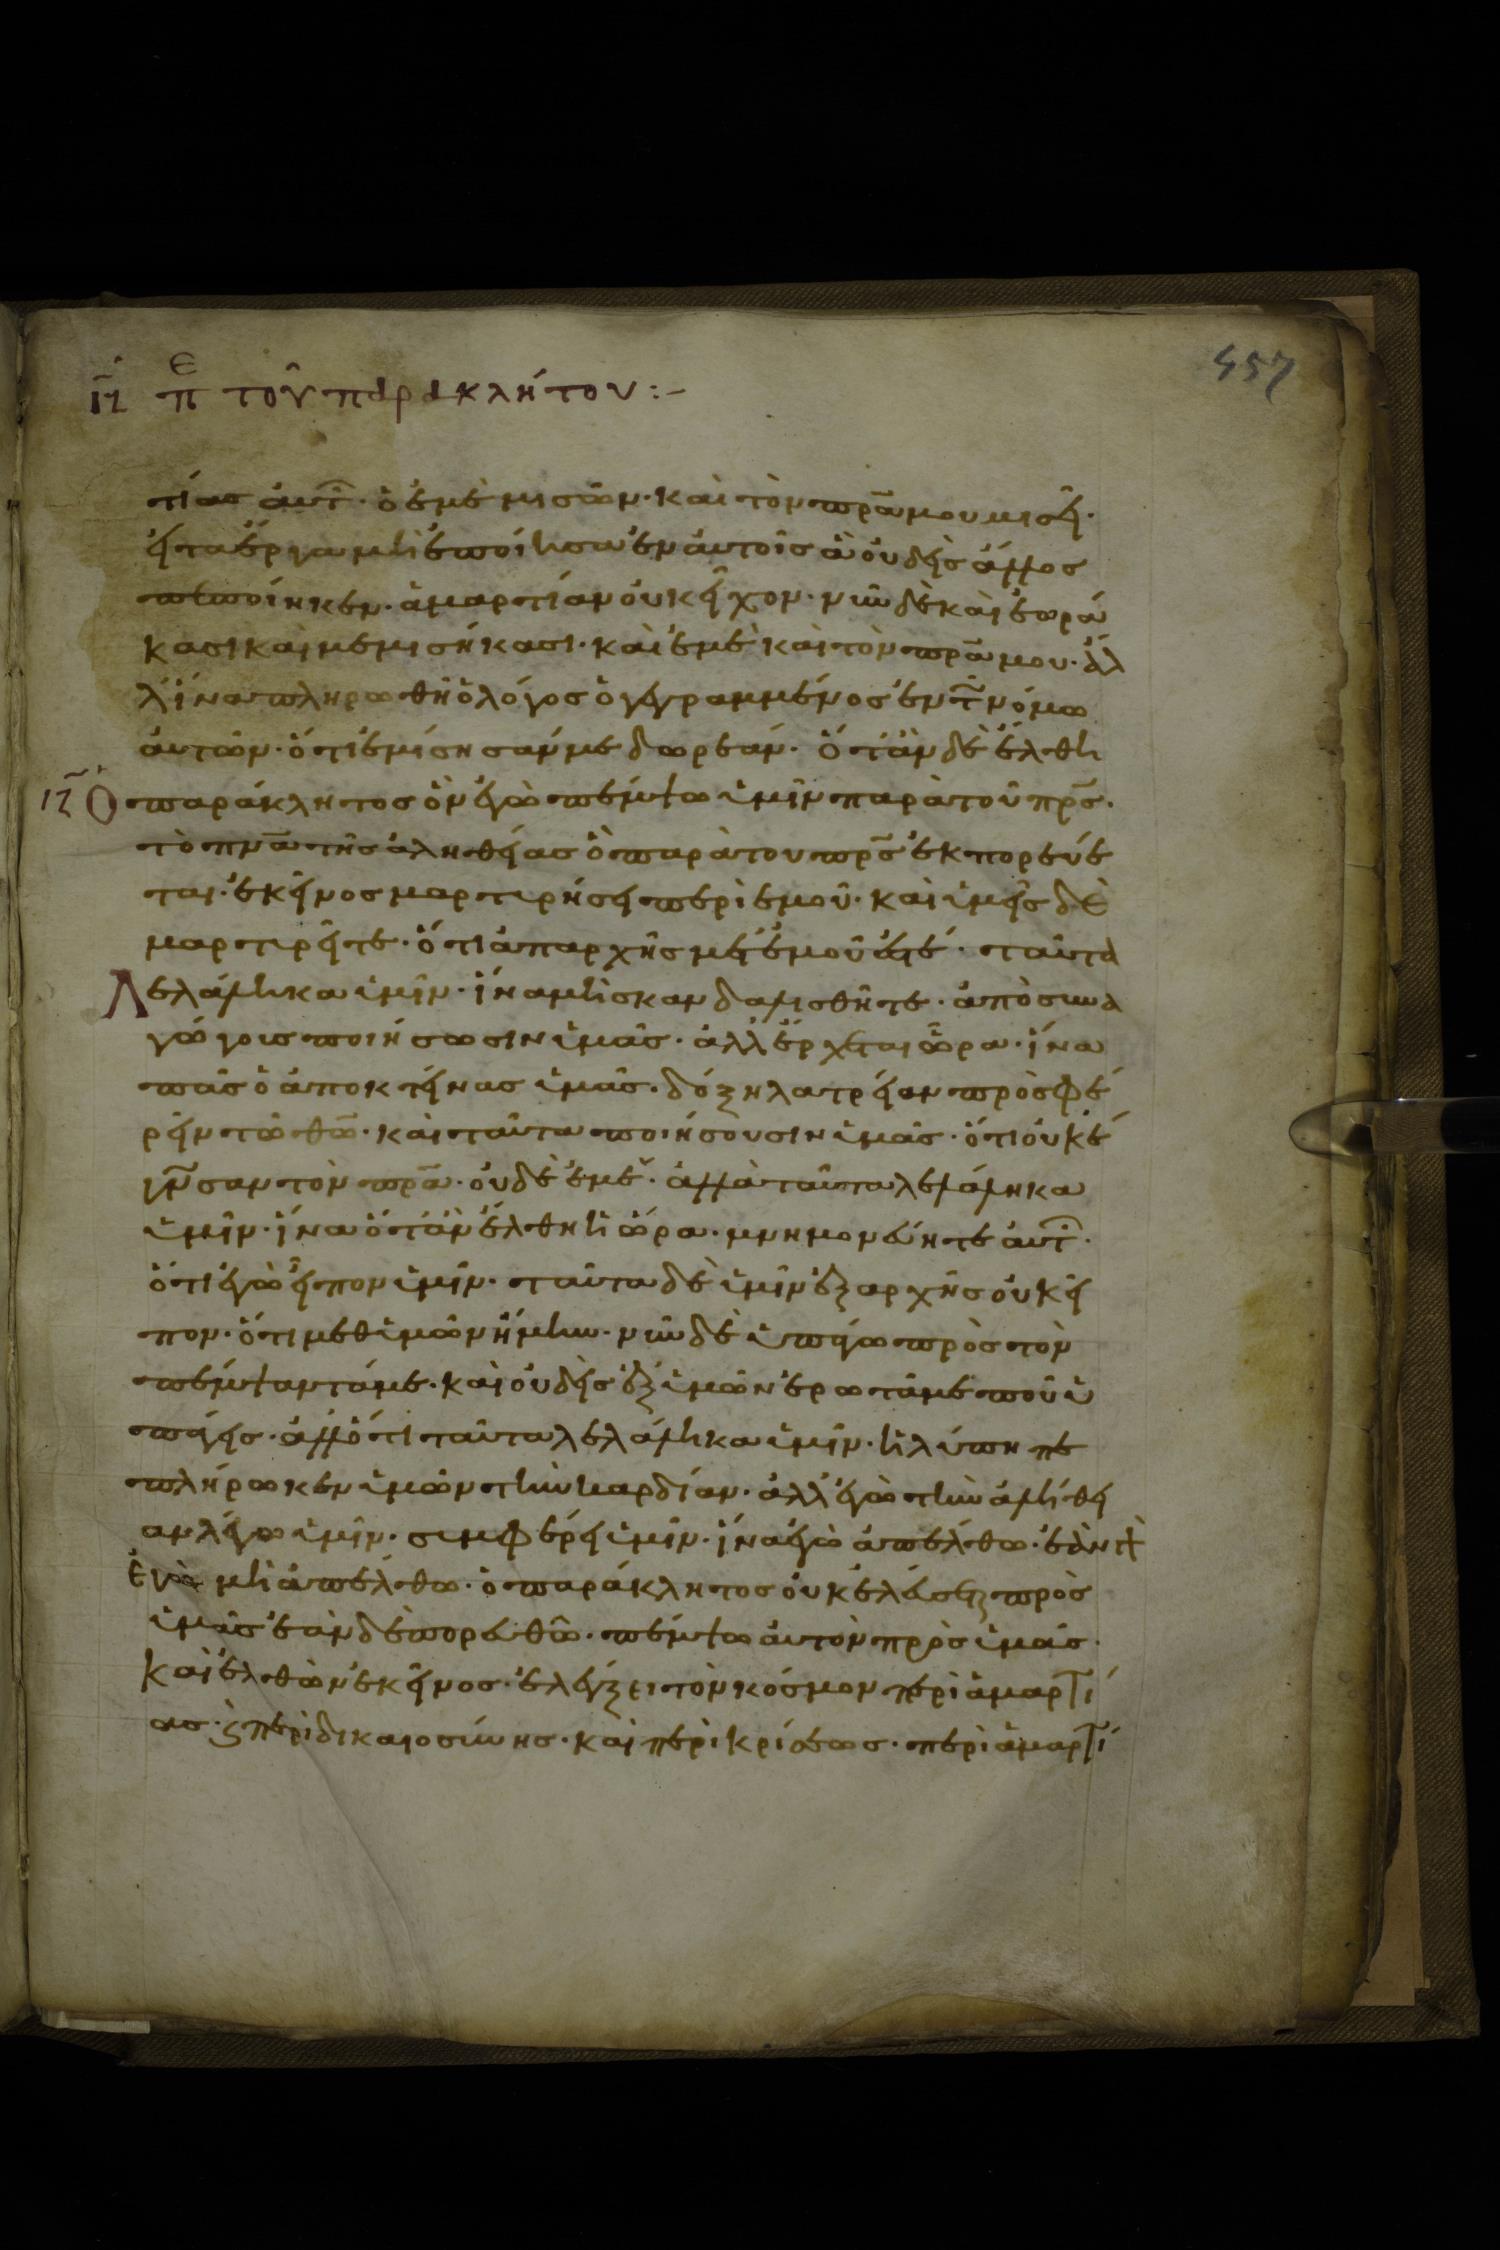 457
ιζ πε τοῦ παρακλήτου :-
τίασ ἀυτ̑. ὁ ἐμὲ μισῶν. καὶ τὸν πρ̅α μου μισεῖ.
εἰ τα ἔργα μὴ ἐποίησα ἐν ἀυτοῖσ ἃ ὀυδεὶσ ἄλλοσ
πεποίηκεν. ἁμαρτίαν ὀυκ εἶχον. νῦν δὲ καὶ ἑωρά
κασι καὶ μεμισήκασι. καὶ ἐμὲ καὶ τὸν πρ̅α μου. ἀλ
λ ἵνα πληρωθῆ ὁ λόγοσ ὁ γεγραμμένοσ ἐν τ̑ νόμω
ἀυτῶν. ὅτι ἐμίσησάν με δωρεάν. ὅτὰν δὲ ἔλθη
ιζ Ὁ παράκλητοσ ὃν ἐγὼ πέμψω ὑμῖν παρὰ τοῦ πρ̅σ.
τὸ πν̅α τῆσ ἀληθείασ ὃ παρὰ του πρ̅σ ἐκπορέυε
ται. ἐκεῖνοσ μαρτυρήσει περὶ ἐμοῦ. καὶ ὑμεῖσ δὲ
μαρτυρεῖτε. ὅτι ἀπαρχῆσ μετ ἐμοῦ ἐστέ. ταῦτα
Λελάληκα ὑμῖν. ἵνα μὴ σκανδαλισθῆτε. ἀπὸσυνα
γώγουσ ποιήσωσιν ὑμᾶσ. ἀλλ ἔρχεται ὥρα. ἵνα
πᾶσ ὁ ἀποκτείνασ ὑμᾶσ. δόξη λατρείαν προσφέ
ρειν τῶ θ̅ω. καὶ ταῦτα ποιήσουσιν ὑμᾶσ. ὅτι ὀυκ ἔ
γν̅σαν τὸν πρ̅α. ὀυδὲ ἐμέ. ἀλλὰ ταῦτα λελάληκα
ὑμῖν. ἵνα ὅτὰν ἔλθη ἡ ὥρα. μνημονέυητε ἀυτ̑.
ὅτι ἐγὼ εἶπον ὑμῖν. ταῦτα δὲ ὑμῖν ἐξαρχῆσ ὀυκ εἶ
πον. ὅτι μεθ ὑμῶν ἤμην. νῦν δὲ ὑπάγω πρὸσ τὸν
πέμψαντάμε. καὶ ὀυδεὶσ ἐξ ὑμῶν ἐρωτᾶ με ποῦ ὑ
πάγεισ. ἀλλ ὅτι ταῦτα λελάληκα ὑμῖν. ἡ λύπη πε
πλήρωκεν ὑμῶν τὴν καρδίαν. ἀλλ ἐγὼ τὴν ἀλήθει
αν λέγω ὑμῖν. συμφέρει ὑμῖν. ἵνα ἐγὼ ἀπέλθω. ἐὰν γὰρ
ἐγὼ μὴ ἀπέλθω. ὁ παράκλητοσ ὀυκ ἐλέυσεται πρὸσ
ὑμᾶσ ἐὰν δὲ πορευθῶ. πέμψω ἀυτὸν πρὸσ ὑμᾶσ.
καὶ ἐλθὼν ἐκεῖνοσ. ἐλέγξει τὸν κόσμον περὶ ἁμαρτί
ασ. ϗ περὶ δικαιοσύνησ. καὶ περὶ κρίσεωσ. περὶ ἁμαρτί